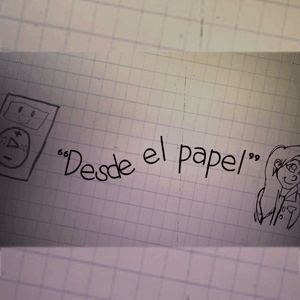 "Desde el papel"